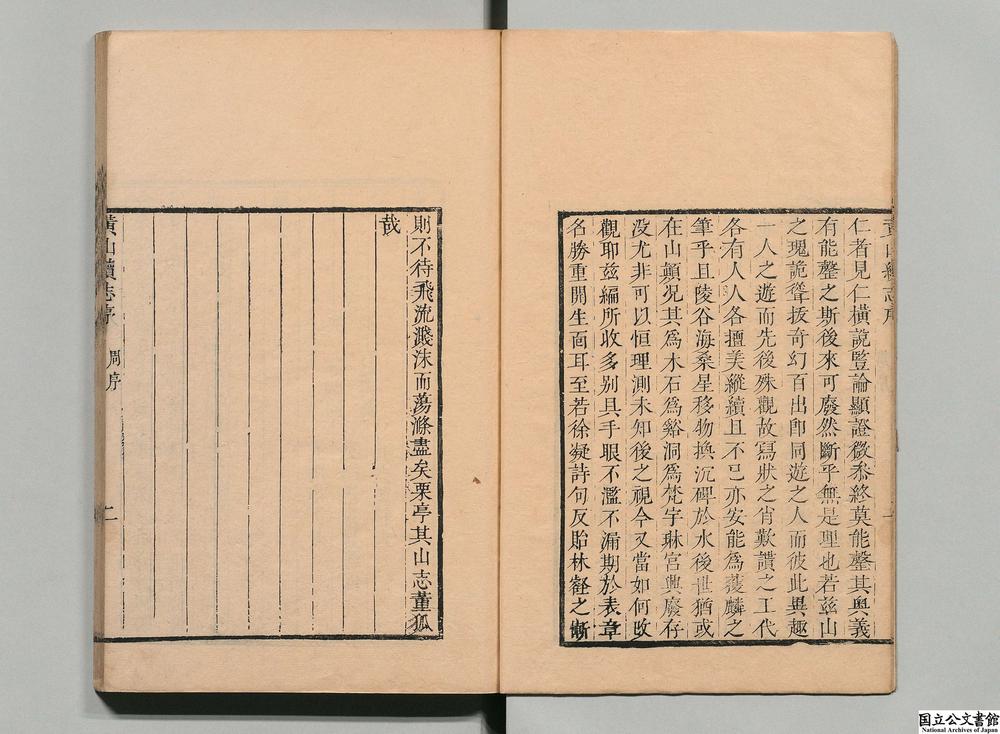 仁者見仁橫說豎論顯證微叅終莫能罄其輿義
有能罄之斯後來可廢然斷乎無是理也若兹山
之瑰詭聳拔奇幻百出卽同遊之人而彼此異趣
一人之遊而先後殊觀故寫狀之肖歎讚之工代
各有人人各擅美縱續且不已亦安能爲獲麟之
筆乎且陵谷海桑星移物換沉碑於水後世猶或
在山顛况其爲木石爲谿洞爲梵宇琳宮興廢存
没尤非可以恒理測未知後之視今又當如何改
觀耶兹編所收多别具手眼不濫不漏期於表章
名勝重開生面耳至若徐凝詩句反貽林壑之慚
則不待飛流濺沫而蕩滌盡矣栗亭其山志董狐
哉
黃山續志序
周序
二
国立公文書館
National Archives of Japan